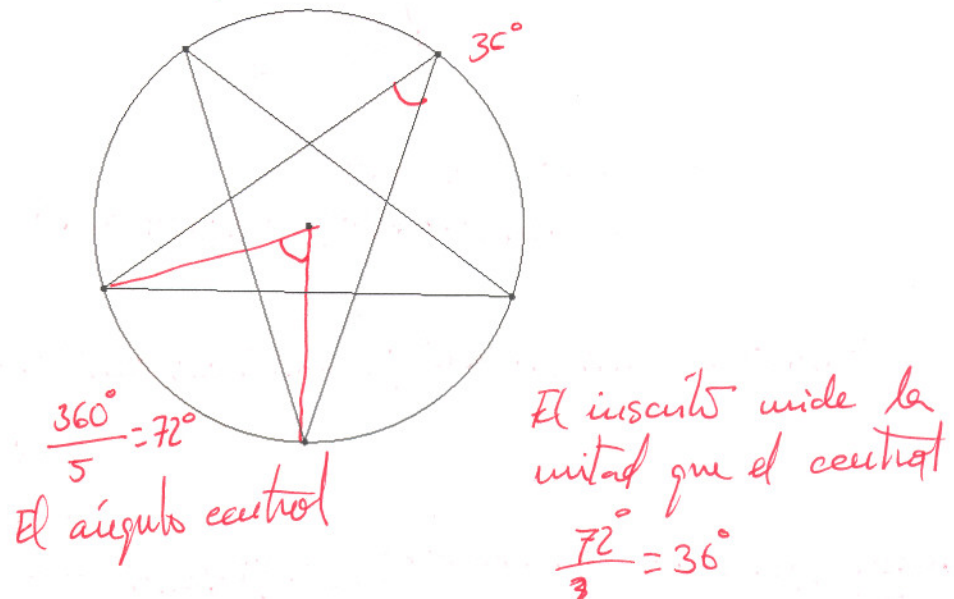 36°
360°/5 = 72°
El ángulo central
El inscrito mide la
mitad que el central
72°/2 = 36°